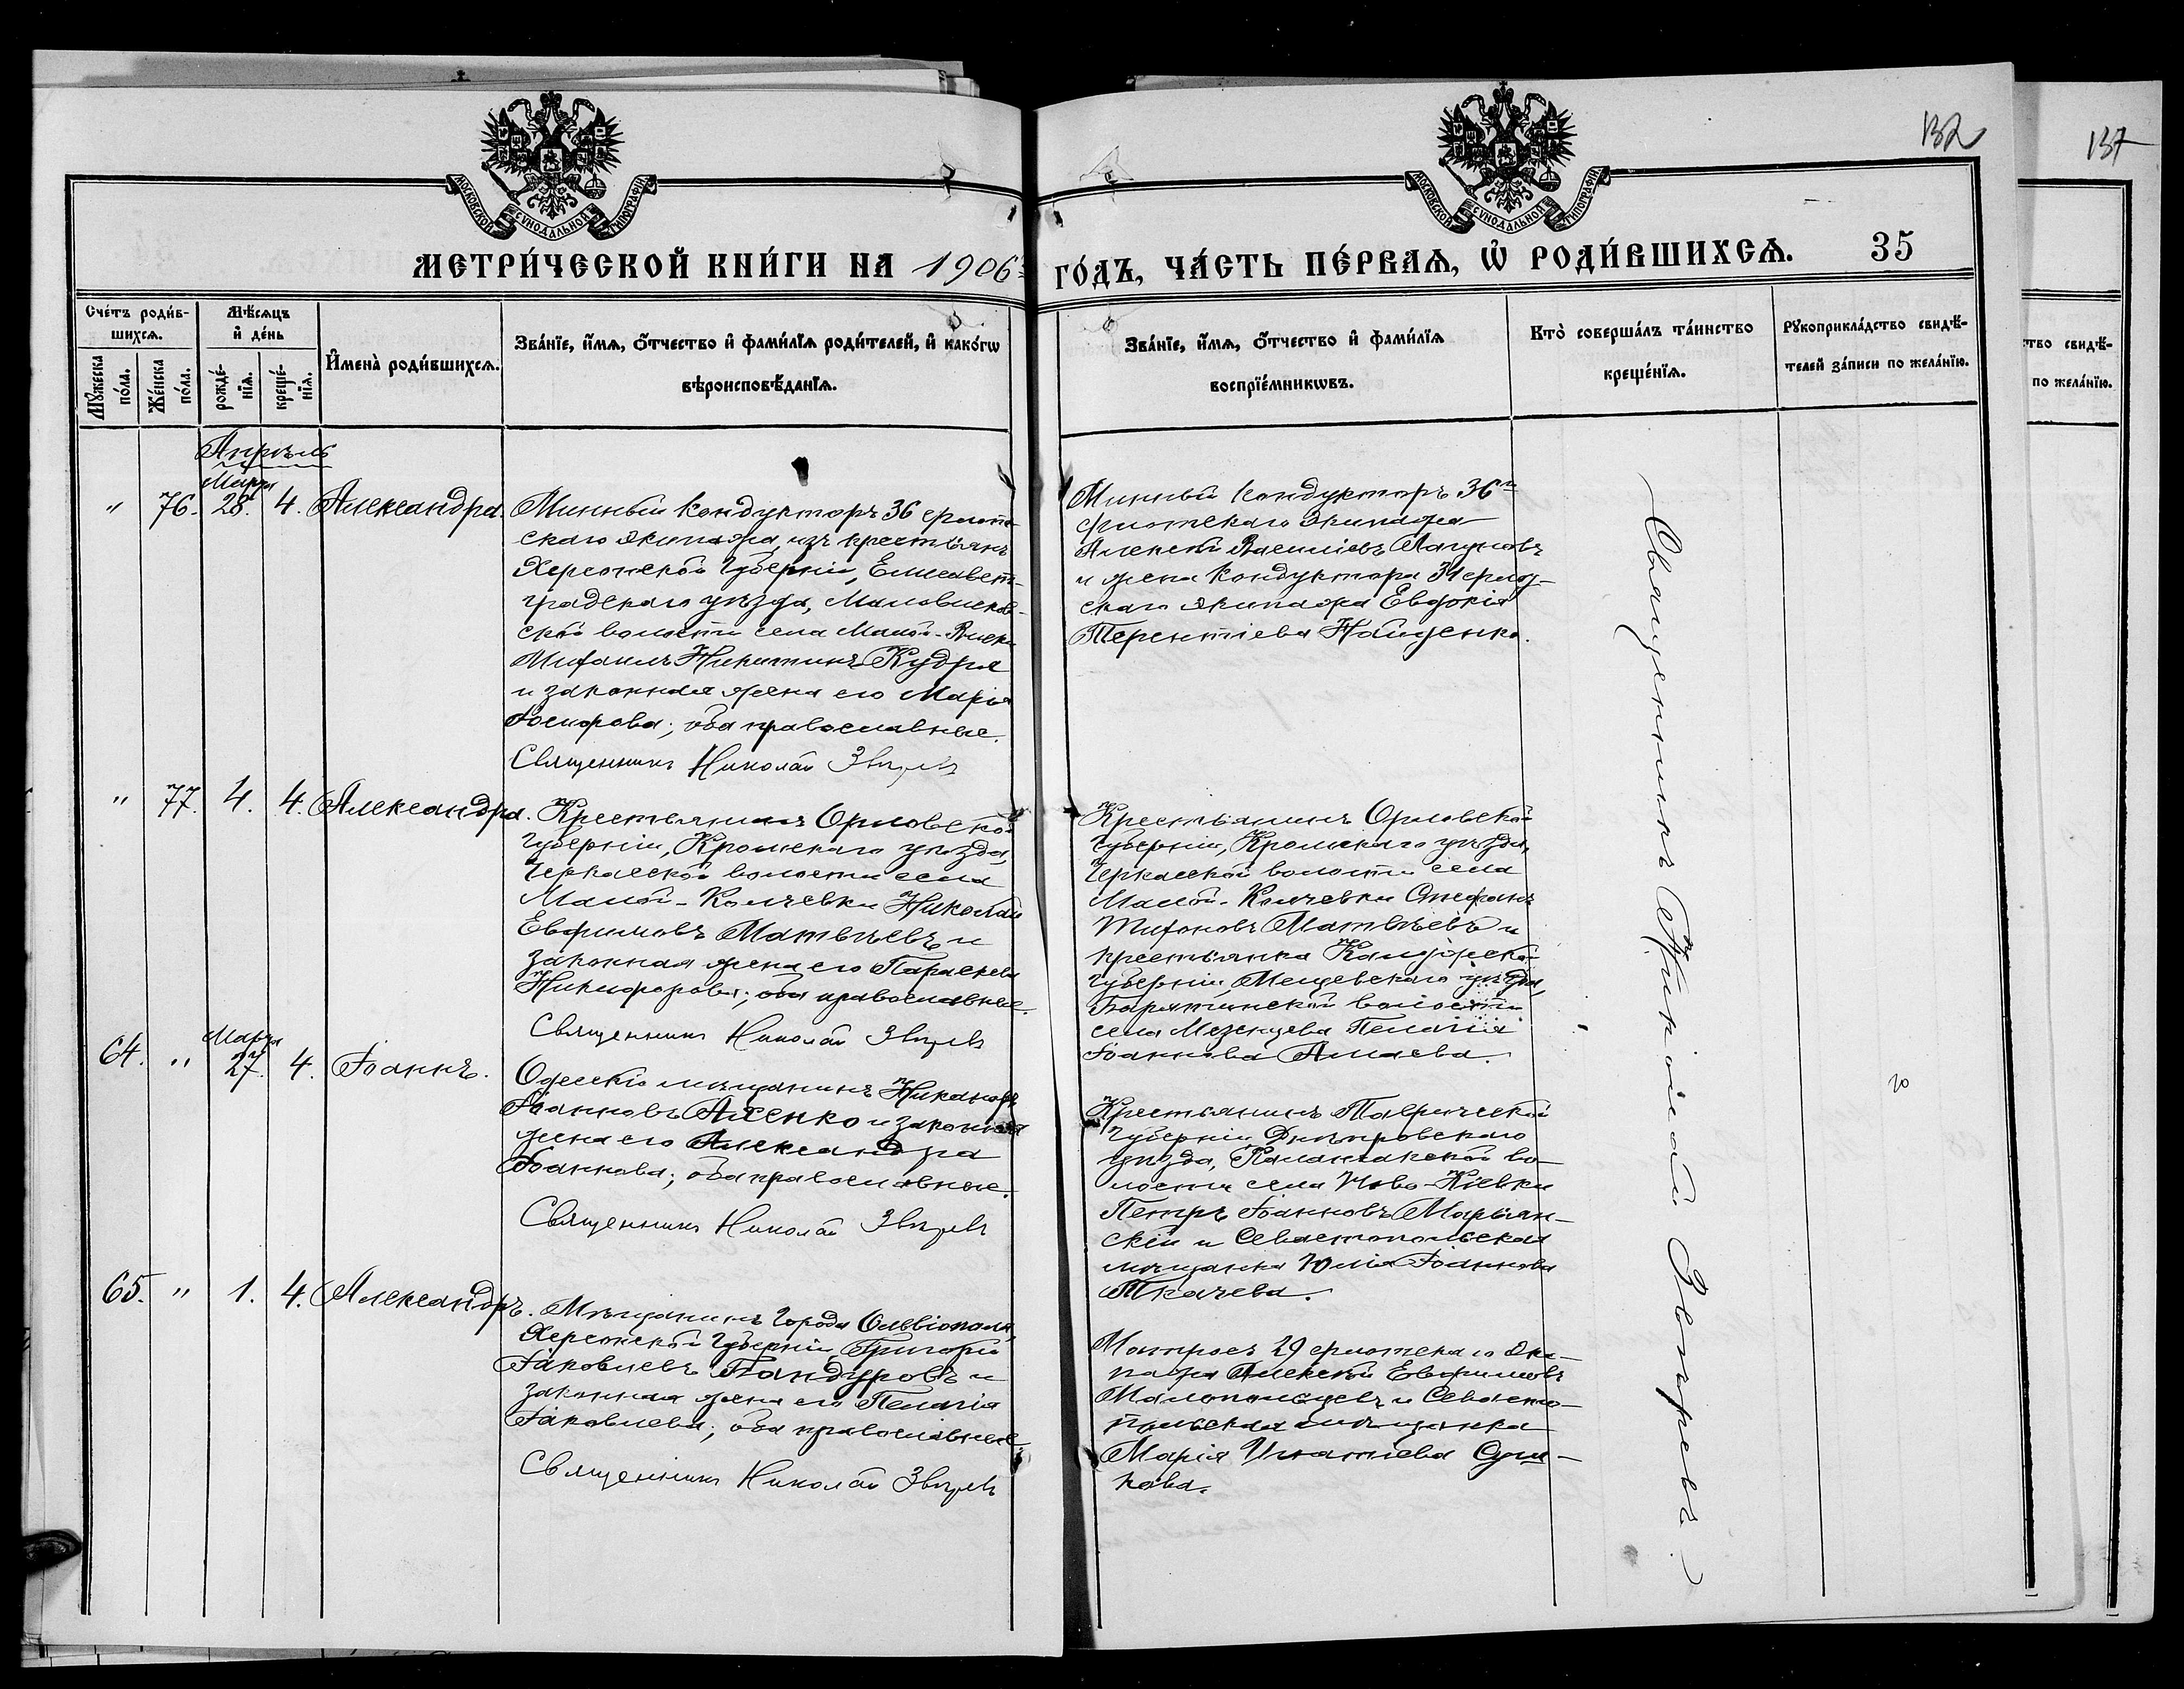 132
137
МОСКОВСКОЙ СѴНОДАЛЬНОЙ ТИПОГРАФІИ.
МОСКОВСКОЙ СѴНОДАЛЬНОЙ ТИПОГРАФІИ.
МЕТРИ́ЧЕСКОЙ КНИ́ГИ НА 1906й
ГО́ДЪ, ЧА́СТЬ ПЕ́РВАѦ, Ѡ҆ РОДИ́ВШИХСѦ. 35
Сче́тъ роди́в-
шихсѧ.
Мѹ́жеска по́ла.
Же́нска по́ла.
Мѣ́сѧцъ
и҆ де́нь
рожде́-
нїѧ.
креще́-
нїѧ.
И҆мена̀ роди́вшихсѧ.
Зва́нїе, и҆́мѧ, ѻ҆́тчество и҆ фами́лїѧ роди́телей, и҆ како́гѡ
вѣроисповѣ́данїѧ.
Зва́нїе, и҆́мѧ, ѻ҆́тчество и҆ фами́лїѧ
воспрїе́мникѡвъ.
Кто̀ соверша́лъ та́инство
креще́нїѧ.
Рѹкоприкла́дство свидѣ́-
телей за́писи по жела́нїю.
тво свидѣ́-
по жела́нїю.
Апрѣль
Марта
" 76. 28. 4. Александра.
Минный кондукторъ 36 флот-
скаго экипажа, изъ крестьянъ
Херсонской губерніи, Елисавет-
градскаго уѣзда, Маловисков-
ской волости села Малой-Виски
Михаилъ Никитинъ Кудря
и законная жена его Марія
Іосифова; оба православные.
Священникъ Николай Звѣревъ
Минный кондукторъ 36го
флотскаго экипажа
Алексѣй Васильевъ Лагуновъ
и жена кондуктора 31 флот-
скаго экипажа Евдокія
Терентіева Найденко.
" 77. 4. 4. Александра.
Крестьянинъ Орловской
губерніи, Кромскаго уѣзда,
Черкасской волости села
Малой-Колчевки Николай
Евфимовъ Матвѣевъ и
законная жена его Параскева
Никифорова; оба православные.
Священникъ Николай Звѣревъ
Крестьянинъ Орловской
губерніи, Кромскаго уѣзда,
Черкасской волости села
Малой-Колчевки Стефанъ
Тихоновъ Матвѣевъ и
крестьянка Калужской
губерніи, Мещевскаго уѣзда,
Барятинской волости
села Мезенцева Пелагія
Іоаннова
Марта
64. " 27. 4. Іоаннъ.
Одесскій мѣщанинъ Никаноръ
Іоанновъ и законная
жена его Александра
Іоаннова; оба православные.
Священникъ Николай Звѣревъ
Крестьянинъ Таврической
губерніи, Днѣпровскаго
уѣзда, Каланчакской во-
лости села Ново-Кіевки
Петръ Іоанновъ Марьян-
скій и Севастопольская
мѣщанка Юлія Іоаннова
Ткачева.
65. " 1. 4. Александръ.
Мѣщанинъ города Ольвіополя,
Херсонской губерніи, Григорій
Іаковлевъ Бандуровъ и
законная жена его Пелагія
Іаковлева; оба православные.
Священникъ Николай Звѣревъ
Матросъ 29 флотскаго эки-
пажа Алексѣй Евфимовъ
и Севасто-
польская мѣщанка
Марія Игнатіева Суш-
кова.
Священникъ Николай Звѣревъ.